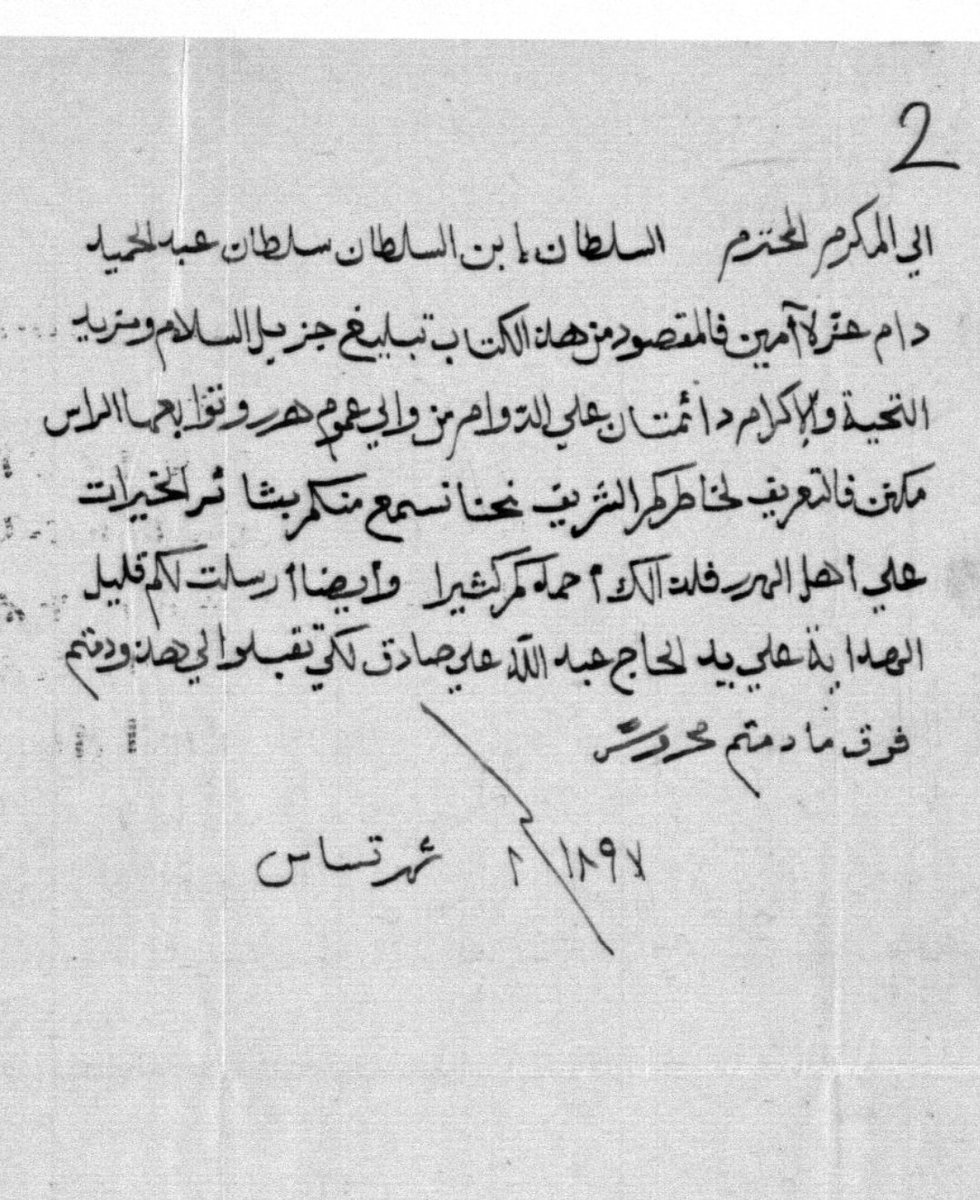 2
الي المكرم المحترم السلطان إبن السلطان سلطان عبد الحميد
دام عزه لا آمين فالمقصود من هذه الكتاب تبليغ جزيل السلام ومزيد
التحية والإكرام دائمتان علي الدوام من والي عموم هرر وتوابعها الراس
مكونن فالتعريف لخاطركم الشريف نحنا نسمع منكم ببشائر الخيرات
علي أهل الهرر فلذالك أحمدكم كثيرا وأيضا أرسلت لكم قليل
الهداية علي يد الحاج عبد الله علي صادق لكي تقبلوا لي هذه ودمتم
فوق ما دمتم محروس
١٨٩٧ م شهر تساس